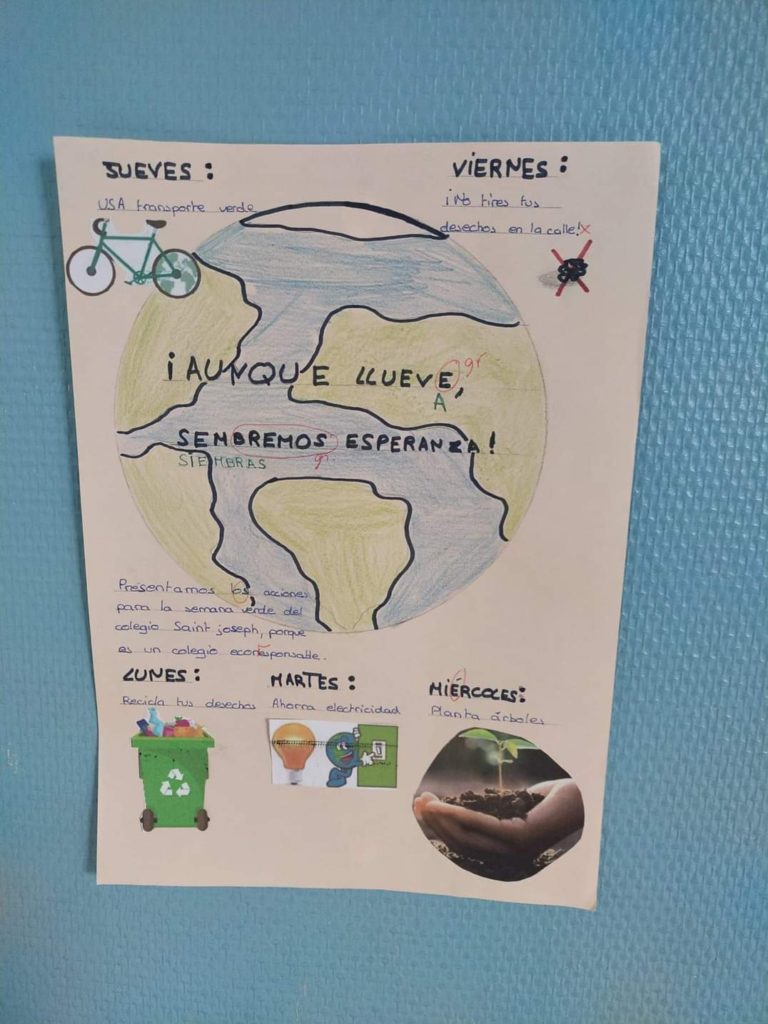 JUEVES:
USA transporte verde
VIERNES:
¡No tires tus
desechos en la calle!x
¡AUNQUE LLUEVE,
gr
A
SEMBREMOS ESPERANZA!
SIEMBRAS
gr
Presentamos los acciones
para la semana verde del
colegio Saint joseph, porque
es un colegio ecoresponsable.
LUNES:
Recicla tus desechos
MARTES:
Ahorra electricidad
MIÉRCOLES:
Planta árboles